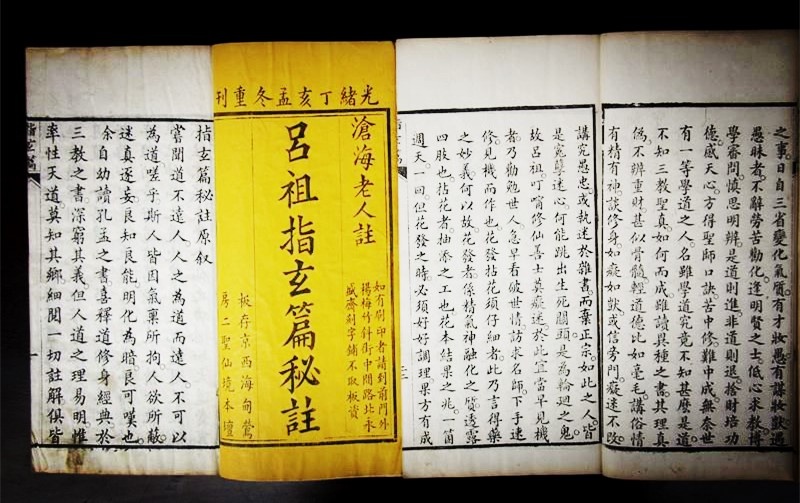 之事。日自三省變化氣質。有才妝愚。有謀妝獃。遇
愚昧者。不辭勞苦勸化。逢明賢之士。低心求教。博
學審問慎思明辨。是道則進。非道則退。捨財培功
德。感天心。方得聖師口訣。苦中修。難中成。無奈世
有一等學道之人。名雖學道。究竟不知甚麼是道。
不知三教聖真。如何而成。雖讀異種之書。其理真
偽不辨。重財甚似骨髓。輕道德比如毫毛。講俗情
有精有神。談修身。如癡如獃。或信旁門。癡迷不改
講究愚忠。或執迷於雜書。而棄正宗。如此之人。皆
是冤孽迷心。何能跳出生死關頭。是為輪廻之鬼。
故呂祖叮嚀修仙善士莫癡迷於此。宜當早見機
者。乃勸勉世人。急早看破世情。訪求名師。下手速
修。見機而作也。花發拈花須仔細者。此乃言得藥
之妙義。何以故。花發者。係精氣神融化之質。透露
四肢也。拈花者。抽添之工也。花本結果之兆。一箇
週天。一回但花發之時。必須好好調理。果方有成
三
光緒丁亥孟冬重刊
滄海老人註
呂祖指玄篇秘註
如有刷印者請到前門外
楊梅竹斜街中間路北永
盛齋刻字鋪不取板資
板存京西海甸鶯
房二聖仙境本壇
指玄篇秘註原叙
嘗聞道不達人。人之為道而達人。不可以
為道。嗟乎。斯人皆因氣稟所拘。人欲所蔽。
迷真逐妄。良知良能。明化為暗。良可嘆也。
余自幼讀孔孟之書。喜釋道修身經典。於
三教之書。深窮其義。但人道之理易明。惟
率性天道。莫知其鄉。細閱一切註解。俱皆
指玄篇
一